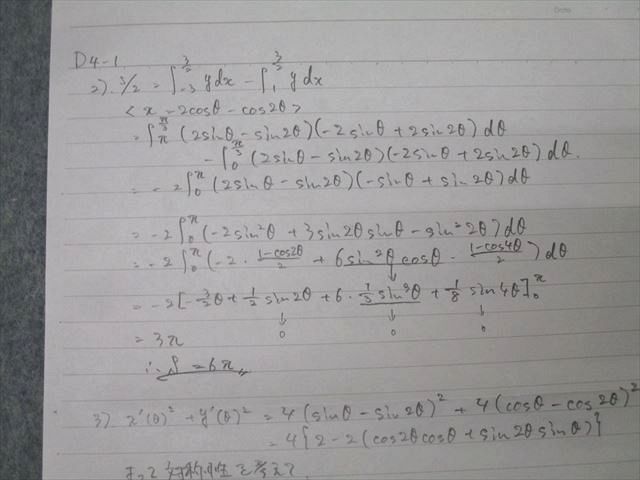 D4-1
2) S/2 = ∫_{-3}^{3/2} ydx - ∫_{1}^{3/2} ydx
< x = 2cosθ - cos2θ >
= ∫_{π}^{π/3} (2sinθ - sin2θ)(-2sinθ + 2sin2θ) dθ
- ∫_{0}^{π/3} (2sinθ - sin2θ)(-2sinθ + 2sin2θ) dθ.
= -2∫_{0}^{π} (2sinθ - sin2θ)(-sinθ + sin2θ) dθ
= -2∫_{0}^{π} (-2sin²θ + 3sin2θ sinθ - sin²2θ) dθ
= -2∫_{0}^{π} (-2・(1-cos2θ)/2 + 6sin²θ cosθ - (1-cos4θ)/2) dθ
= -2[-3/2θ + 1/2 sin2θ + 6・1/3 sin³θ + 1/8 sin4θ]_{0}^{π}
↓ 0 ↓ 0 ↓ 0
= 3π
∴ S = 6π
3) x'(θ)² + y'(θ)² = 4(sinθ - sin2θ)² + 4(cosθ - cos2θ)²
= 4{2 - 2(cos2θcosθ + sin2θ sinθ)}
よって対称性を考えて